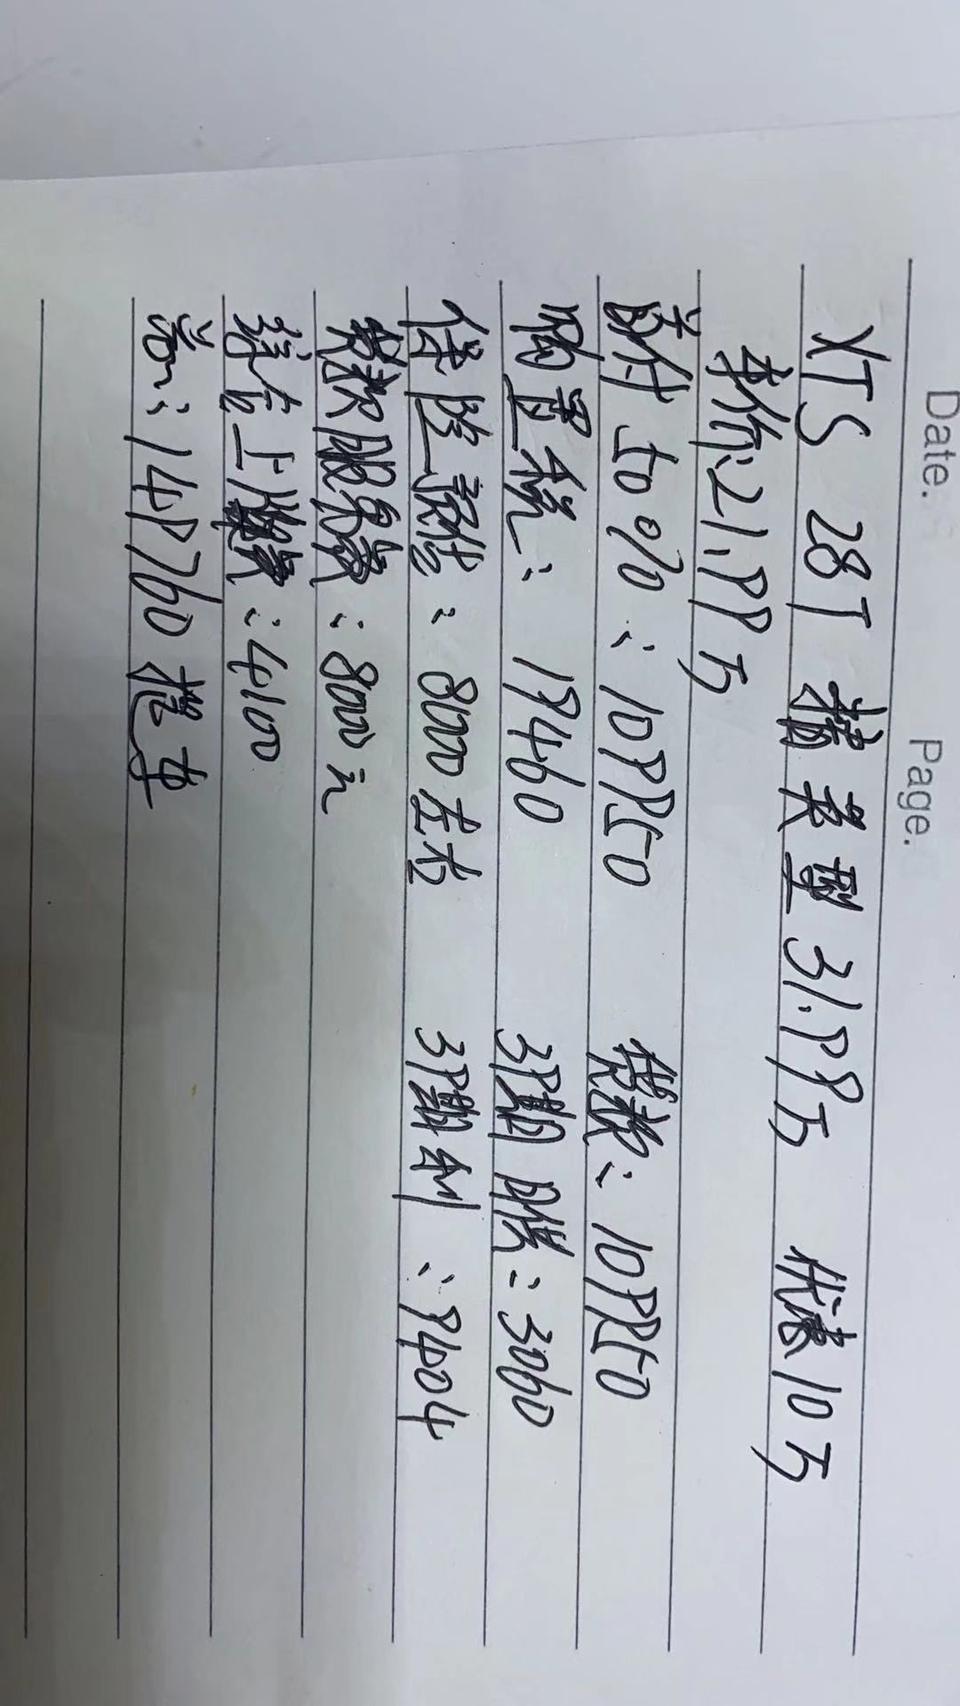 Date. Page.
XTS 28T 精英型 31.99万 优惠10万
车价:21.99万
首付50%:109950 贷款:109950
购置税:19460 3期月供:3060
保险预估:8000左右 3期利:9404
贷款服务费:8000元
综合上牌费:4100
总:149760提车